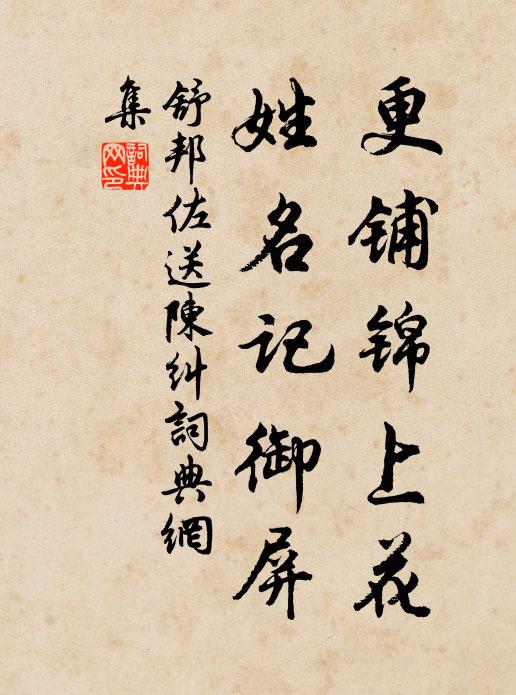 更铺锦上花
姓名记御屏
舒邦佐送陳糾詞典網
集
詞典網印